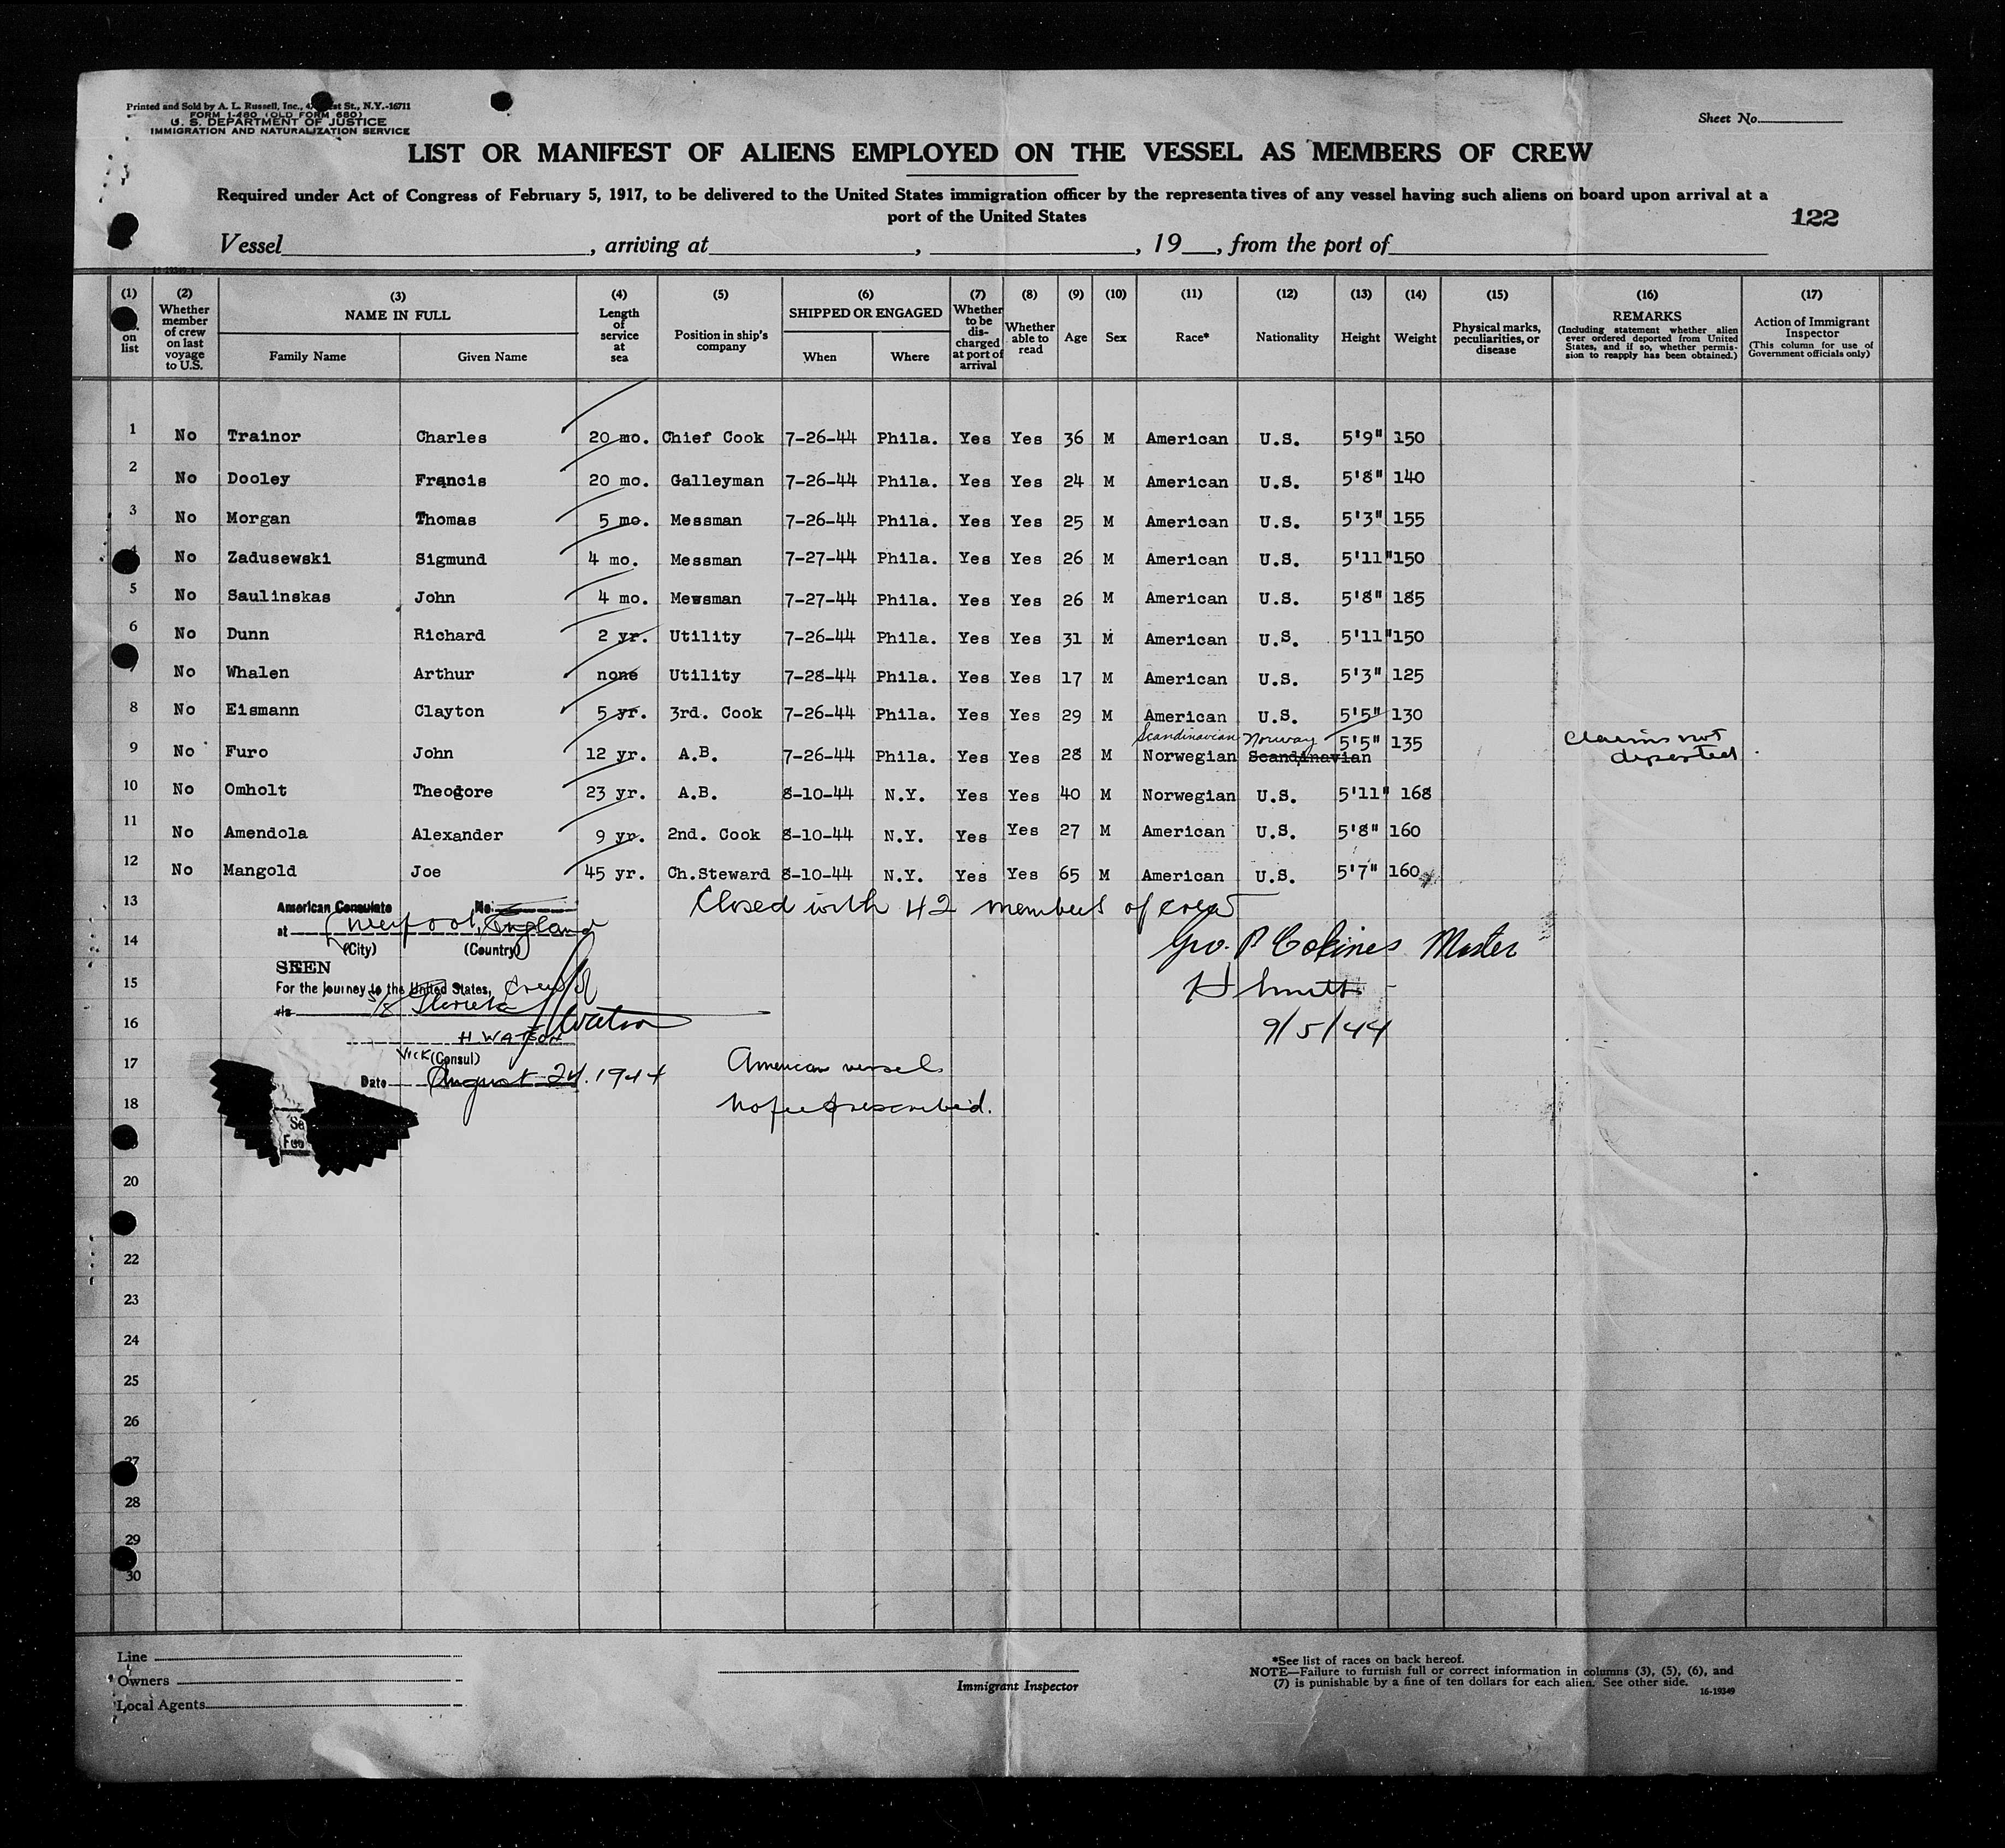 Printed and Sold by A. L. Russell, Inc., St., N.Y.-16711
FORM I-480 (OLD FORM 680)
U. S. DEPARTMENT OF JUSTICE
IMMIGRATION AND NATURALIZATION SERVICE
Sheet No.
LIST OR MANIFEST OF ALIENS EMPLOYED ON THE VESSEL AS MEMBERS OF CREW
Required under Act of Congress of February 5, 1917, to be delivered to the United States immigration officer by the representatives of any vessel having such aliens on board upon arrival at a
port of the United States
122
Vessel , arriving at , , 19 , from the port of
(1) on list (2) Whether member of crew on last voyage to U.S. (3) NAME IN FULL Family Name Given Name (4) Length of service at sea (5) Position in ship's company (6) SHIPPED OR ENGAGED When Where (7) Whether to be discharged at port of arrival (8) Whether able to read (9) Age (10) Sex (11) Race* (12) Nationality (13) Height (14) Weight (15) Physical marks, peculiarities, or disease (16) REMARKS (Including statement whether alien ever ordered deported from United States, and if so, whether permission to reapply has been obtained.) (17) Action of Immigrant Inspector (This column for use of Government officials only)
1 No Trainor Charles 20 mo. Chief Cook 7-26-44 Phila. Yes Yes 36 M American U.S. 5'9" 150
2 No Dooley Francis 20 mo. Galleyman 7-26-44 Phila. Yes Yes 24 M American U.S. 5'8" 140
3 No Morgan Thomas 5 mo. Messman 7-26-44 Phila. Yes Yes 25 M American U.S. 5'3" 155
4 No Zadusewski Sigmund 4 mo. Messman 7-27-44 Phila. Yes Yes 26 M American U.S. 5'11" 150
5 No Saulinskas John 4 mo. Mewsman 7-27-44 Phila. Yes Yes 26 M American U.S. 5'8" 185
6 No Dunn Richard 2 yr. Utility 7-26-44 Phila. Yes Yes 31 M American U.S. 5'11" 150
7 No Whalen Arthur none Utility 7-28-44 Phila. Yes Yes 17 M American U.S. 5'3" 125
8 No Eismann Clayton 5 yr. 3rd. Cook 7-26-44 Phila. Yes Yes 29 M American U.S. 5'5" 130
Scandinavian Norway
9 No Furo John 12 yr. A.B. 7-26-44 Phila. Yes Yes 28 M Norwegian Scandinavian 5'5" 135 Claims not deported
10 No Omholt Theodore 23 yr. A.B. 8-10-44 N.Y. Yes Yes 40 M Norwegian U.S. 5'11" 168
11 No Amendola Alexander 9 yr. 2nd. Cook 8-10-44 N.Y. Yes Yes 27 M American U.S. 5'8" 160
12 No Mangold Joe 45 yr. Ch.Steward 8-10-44 N.Y. Yes Yes 65 M American U.S. 5'7" 160
13 American Consulate No. Closed with 42 members of crew
at Liverpool, England
14 (City) (Country) Geo. P Cokines Master
SEEN
15 For the journey to the United States, Crew of H Smith
via S/S
16 Watson 9/5/44
H. WATSON
17 VICE (Consul) American vessel
Date August 24, 1944
18 No fee prescribed.
Se
Fee
20
22
23
24
25
26
27
28
29
30
Line
Owners
Local Agents
Immigrant Inspector
*See list of races on back hereof.
NOTE—Failure to furnish full or correct information in columns (3), (5), (6), and
(7) is punishable by a fine of ten dollars for each alien. See other side.
16-19349